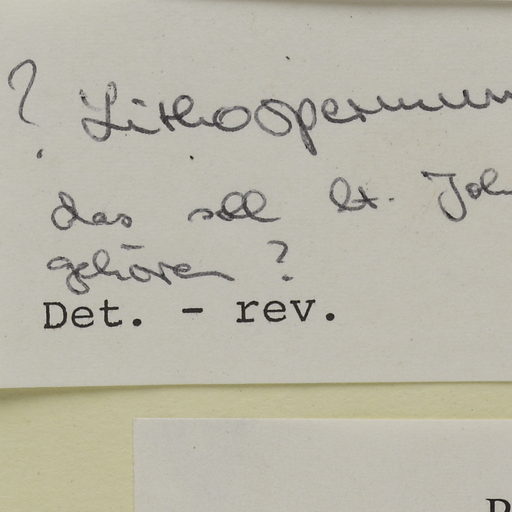 ? Lithospermum
das soll lt. Joh
gehören ?
Det. - rev.